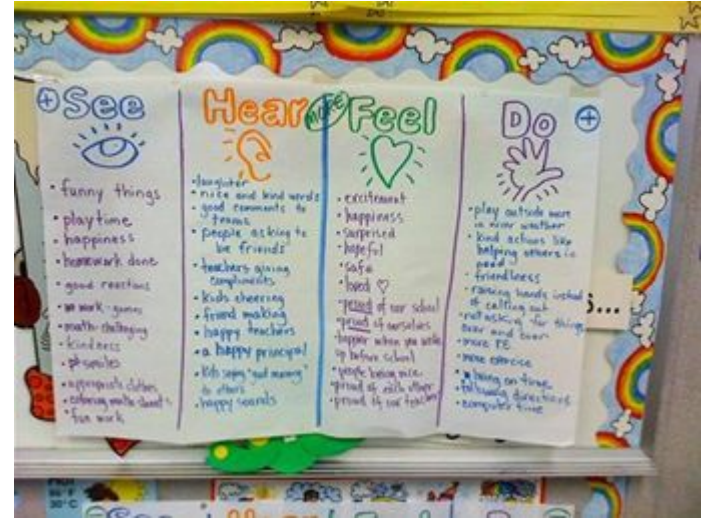 See
funny things
playtime
happiness
homework done
good reactions
work - games
math - challenging
kindness
smiles
appropriate clothes
coloring math sheets
fun work
Hear
laughter
nice and kind words
good comments to
teams
people asking to
be friends
teachers giving
compliments
kids cheering
friend making
happy teachers
a happy principal
kids saying "good morning"
to others
happy sounds
more
Feel
excitement
happiness
surprised
hopeful
safe
loved ♡
proud of our school
proud of ourselves
happier when you wake
up before school
people being nice
proud of each other
proud of our teacher
Do
play outside more
in nicer weather
kind actions like
helping others in
need
friendliness
raising hands instead
of calling out
not asking for things
over and over
more PE
more exercise
being on time
following directions
computer time
s...
30°C
See
Hear
Feel
Do